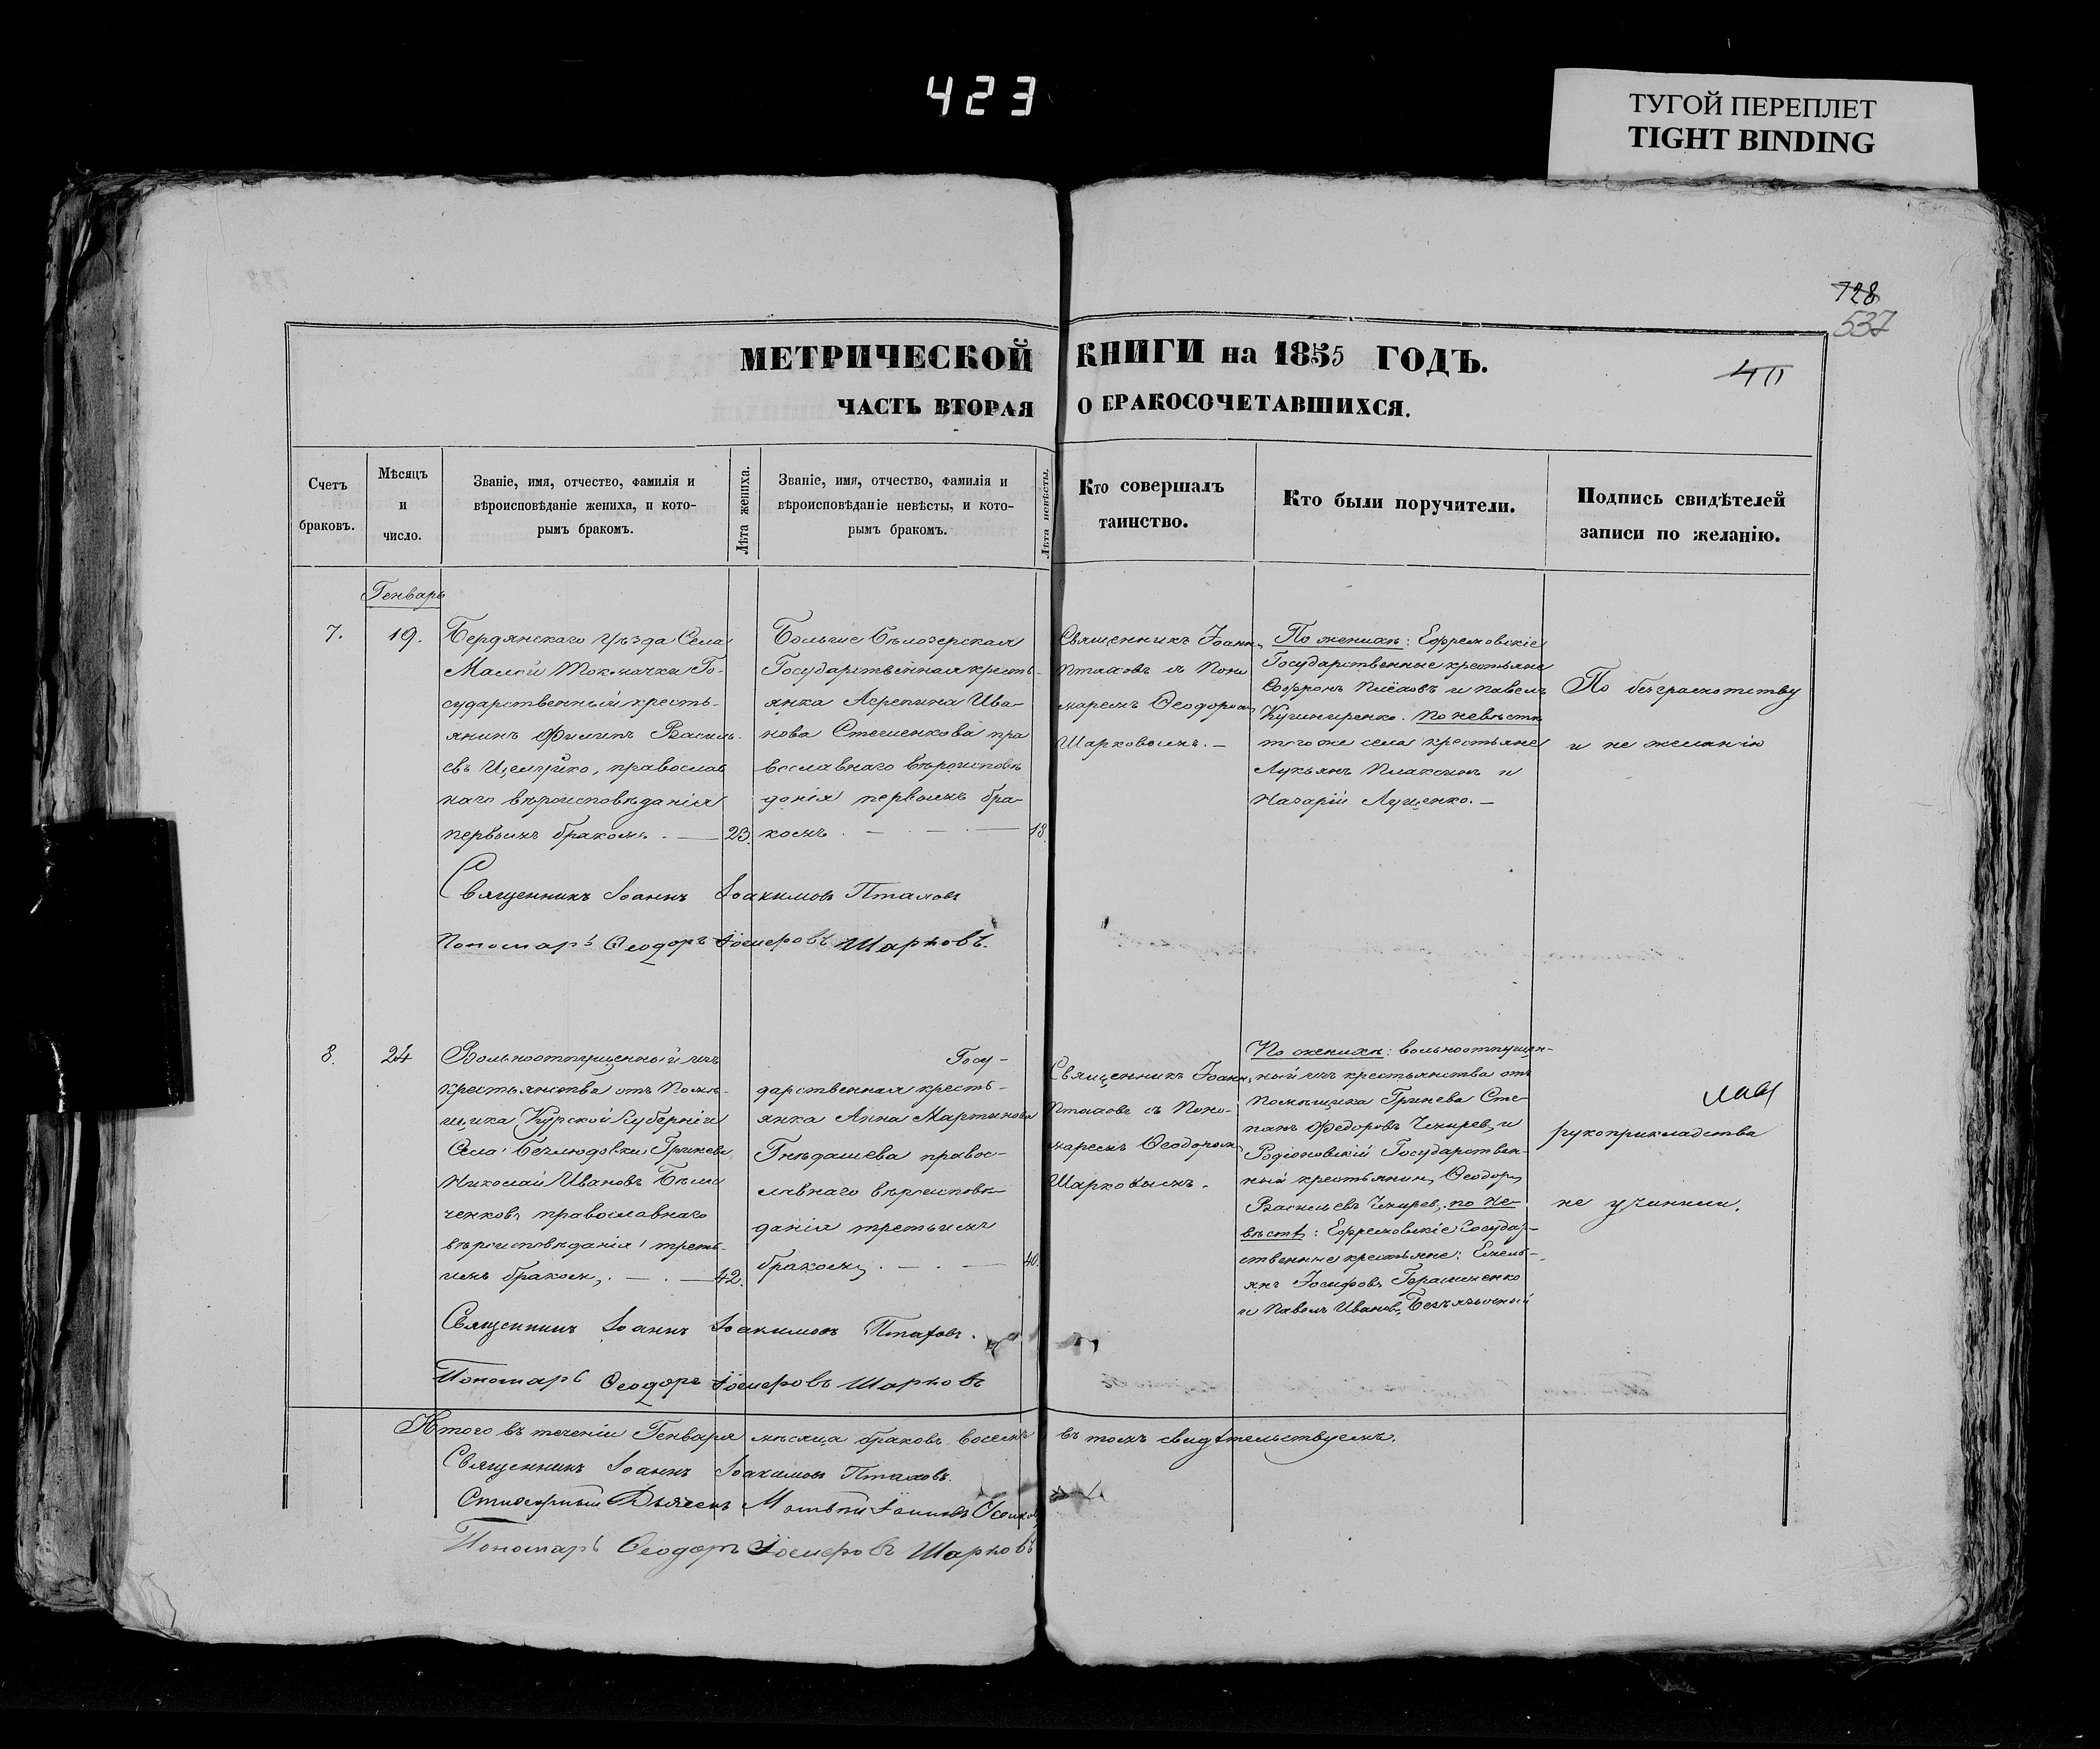 423
ТУГОЙ ПЕРЕПЛЕТ
TIGHT BINDING
728
537
МЕТРИЧЕСКОЙ КНИГИ на 1855 ГОДЪ.
40
ЧАСТЬ ВТОРАЯ О БРАКОСОЧЕТАВШИХСЯ.
Счетъ
браковъ.
Мѣсяцъ
и
число.
Званіе, имя, отчество, фамилія и
вѣроисповѣданіе жениха, и кото-
рымъ бракомъ.
Лѣта жениха.
Званіе, имя, отчество, фамилія и
вѣроисповѣданіе невѣсты, и кото-
рымъ бракомъ.
Лѣта невѣсты.
Кто совершалъ
таинство.
Кто были поручители.
Подпись свидѣтелей
записи по желанію.
Генварь
7.
19.
Бердянскаго Уѣзда Села
Малой Токмачка Го-
сударственный кресть-
янинъ Филипъ Василь-
евъ православ
наго вѣроисповѣданія
первымъ бракомъ. —
23.
Больше Бѣлозерская
Государственная кресть-
янка Агрепина Ива-
нова Стешенкова пра
вославнаго вѣроисповѣ
данія первымъ бра-
комъ. — . — . —
18.
Священникъ Іоаннъ
Птаховъ съ Поно
маремъ Ѳеодоромъ
Шарковымъ. —
По женихѣ: Ефремовскіе
Государственные крестьяне
Софронъ и Павелъ
Кушниренко. По невѣстѣ
того же села крестьяне
Лукьянъ Плаксинъ и
Назарій Луценко. —
По безграмотству
и не желанію
Священникъ Іоаннъ Іоакимовъ Птаховъ
Пономарь Ѳеодоръ Іосифовъ Шарковъ.
8.
24
Вольноотпущенный изъ
крестьянства отъ Помѣ-
щика Курской Губерніи
Села Безлюдовки Гринева
Николай Ивановъ
ченковъ православнаго
вѣроисповѣданія треть-
имъ бракомъ, . — . —
42.
Госу-
дарственная кресть-
янка Анна Мартынова
Гнѣдашева правос-
лавнаго вѣроисповѣ-
данія третьимъ
бракомъ, . — . —
40.
Священникъ Іоаннъ
Птаховъ съ Поно-
маремъ Ѳеодоромъ
Шарковымъ.
По женихѣ: вольноотпущен-
ный изъ крестьянства отъ
Помѣщика Гринева Сте-
панъ Федоровъ и
Родіоновскій Государствен-
ный крестьянинъ Ѳеодоръ
Васильевъ по не-
вѣстѣ: Ефремовскіе Государ-
ственные крестьяне: Емель-
янъ Іосифовъ Герасименко
и Павелъ Ивановъ Безъязычный
рукоприкладства
не учинили.
Священникъ Іоаннъ Іоакимовъ Птаховъ.
Пономарь Ѳеодоръ Іосифовъ Шарковъ
Итого въ теченіи Генваря мѣсяца браковъ восемь въ томъ свидѣтельствуемъ.
Священникъ Іоаннъ Іоакимовъ Птаховъ.
Стихарный Дьячекъ
Пономарь Ѳеодоръ Іосифовъ Шарковъ